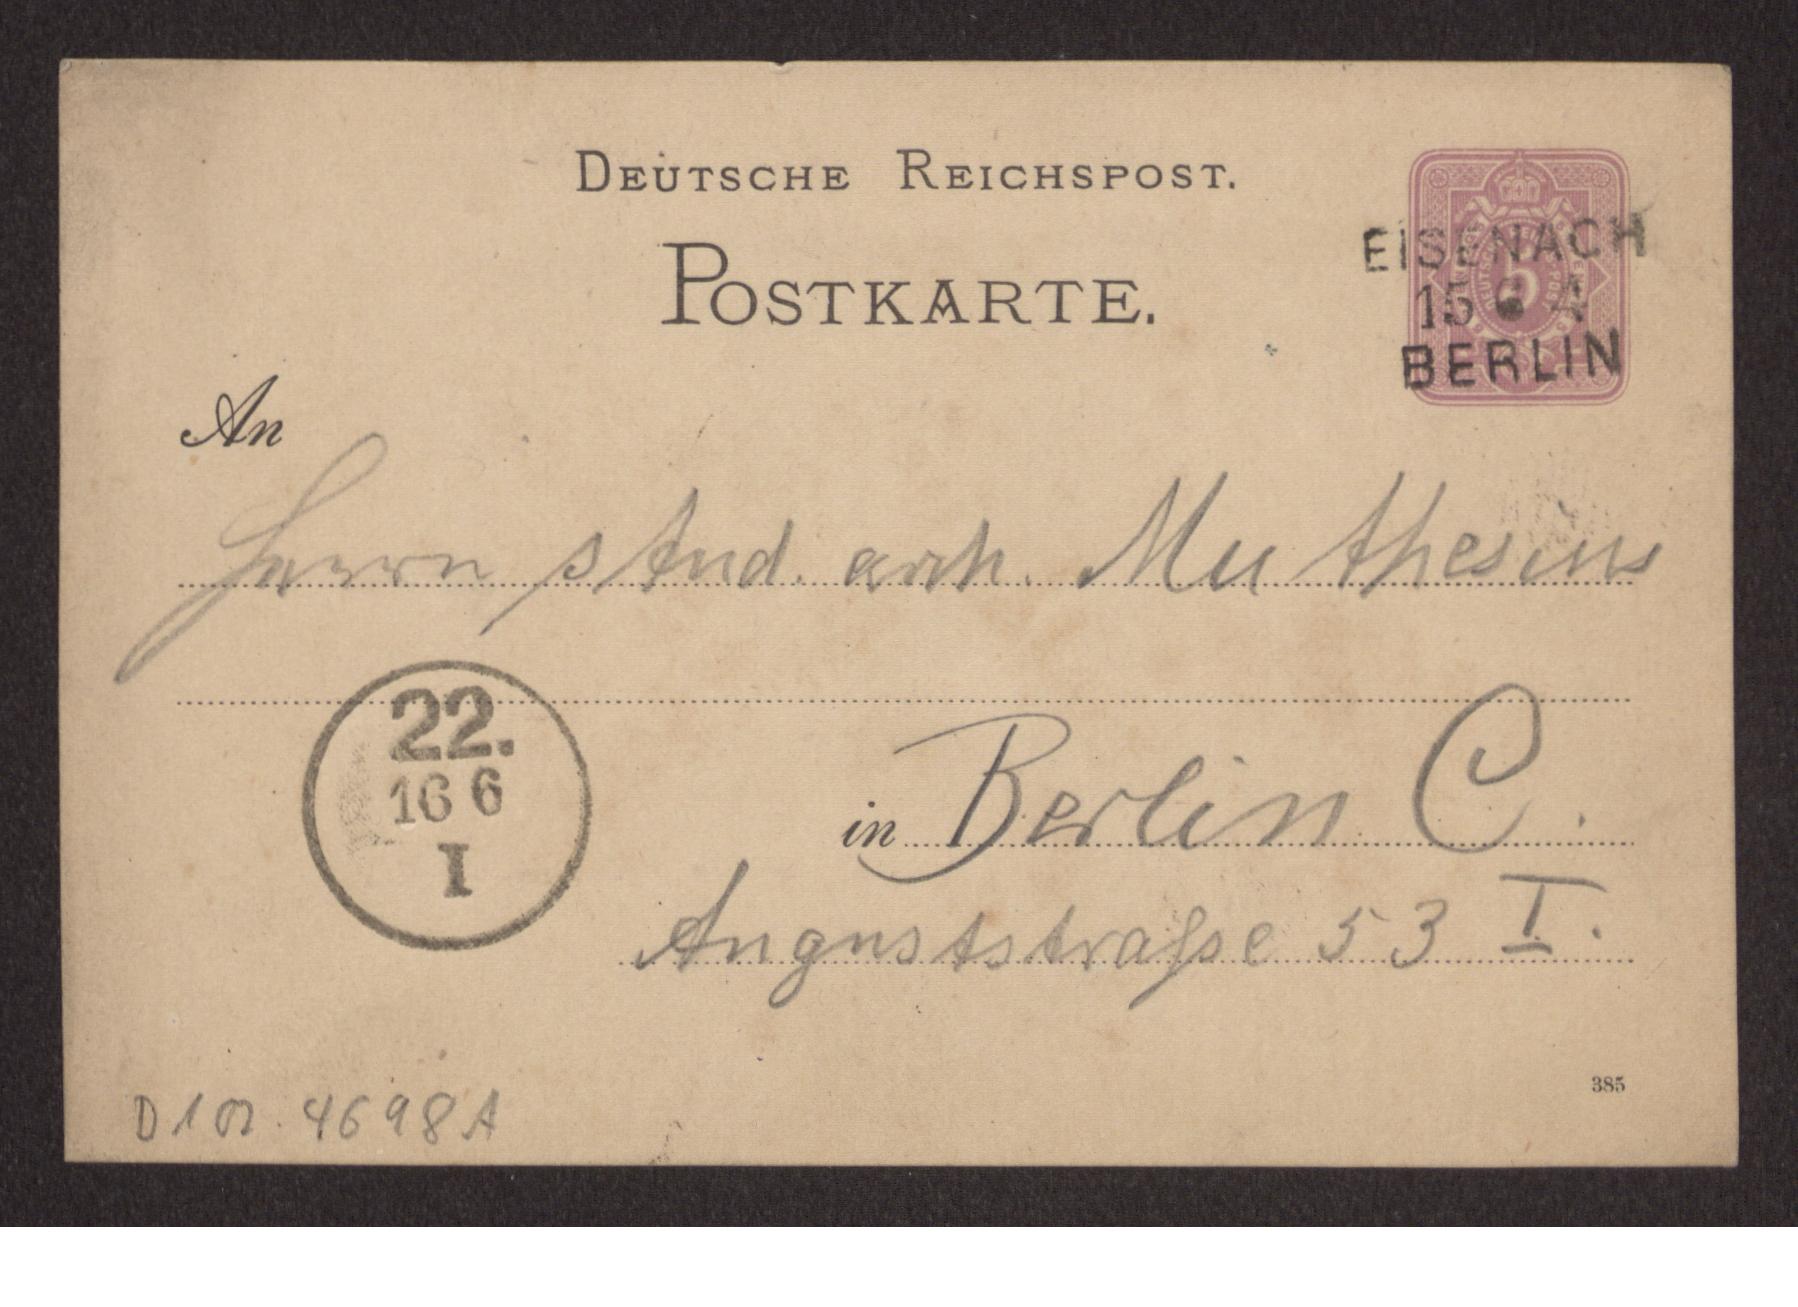 DEUTSCHE REICHSPOST.
POSTKARTE.
EISENACH
15 6 4
BERLIN
5
An
Herrn stud. arch. Muthesius
22.
16 6
I
in Berlin C.
Auguststraße 53 I.
385
4698A